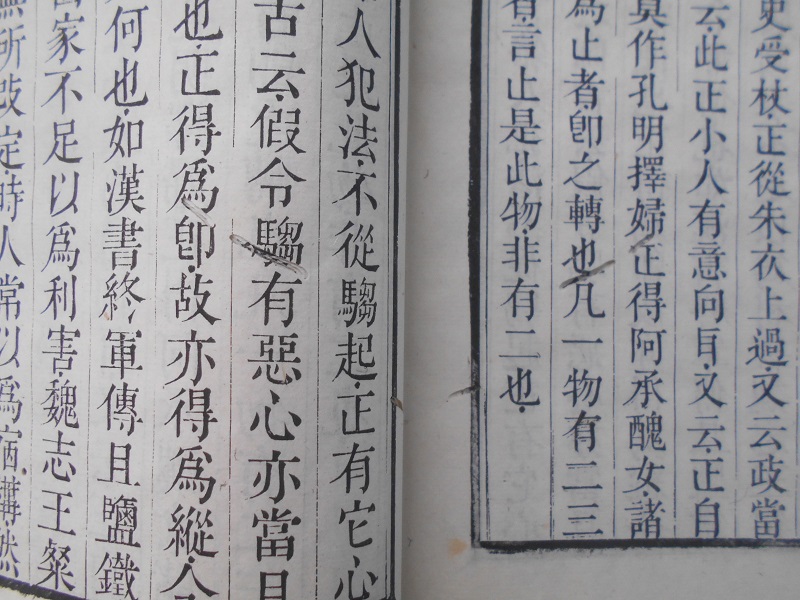 史受杖正從朱衣上過又云政當
云此正小人有意向𦣞又云正自
莫作孔明擇婦正得阿承醜女諸
為止者卽之轉也凡一物有二三
有言止是此物非有二也
人犯法不從騶起正有它心
古云假令騶有惡心亦當且
也正得爲卽故亦得爲縱
何也如漢書終軍傳且鹽鐵
家不足以爲利害魏志王粲
無所改定時人常以爲宿構然